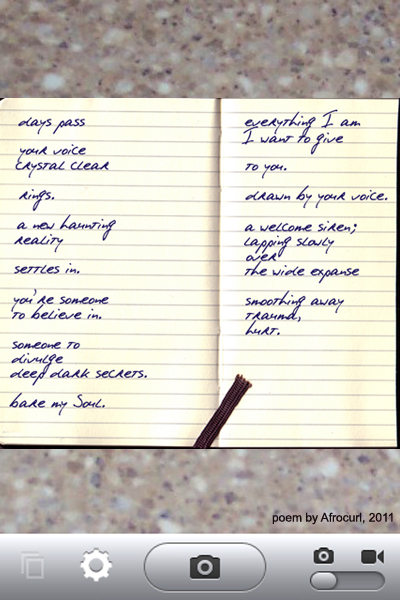 days pass
your voice
crystal clear
rings.
a new haunting
reality
settles in.
you're someone
to believe in.
someone to
divulge
deep dark secrets.
bare my Soul.
everything I am
I want to give
to you.
drawn by your voice.
a welcome siren;
lapping slowly
over
the wide expanse
smoothing away
trauma,
hurt.
poem by Afrocurl, 2011